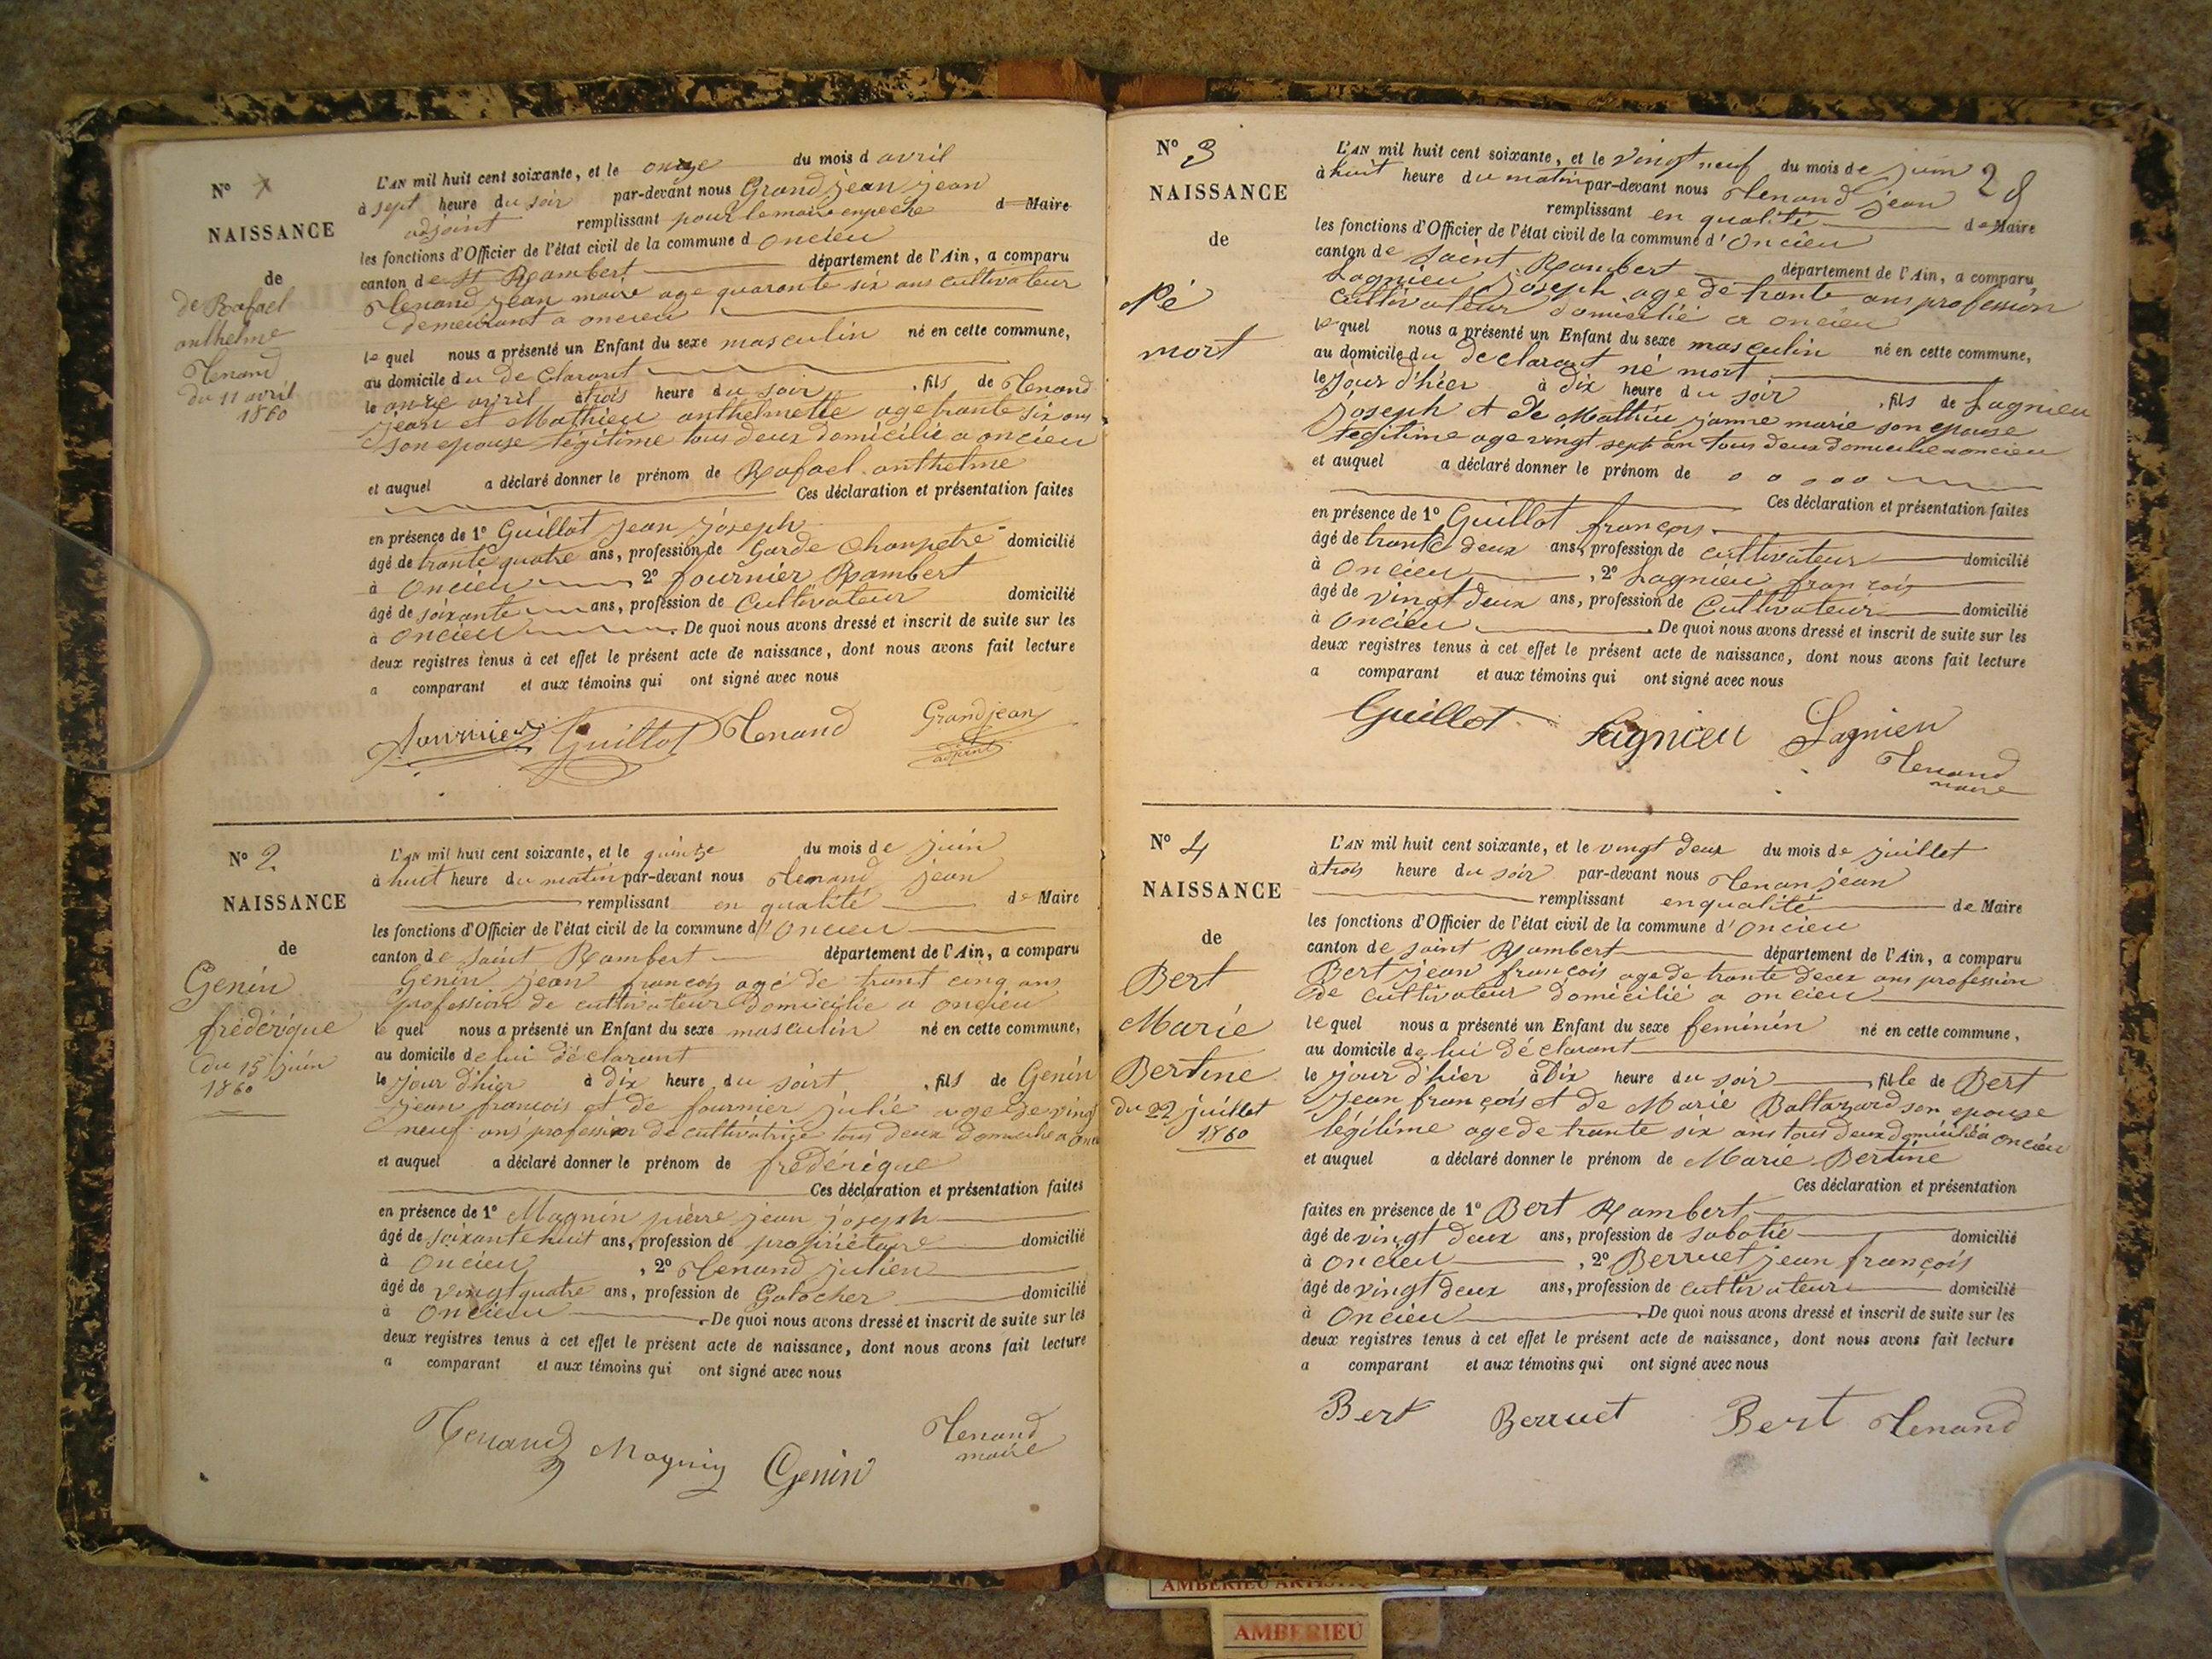 N° 1
NAISSANCE
de
de Rafael
anthelme
Tenand
du 11 avril
1860
L'AN mil huit cent soixante, et le onze du mois d avril
à sept heure du soir par-devant nous Grandjean jean
adjoint remplissant pour le maire enpeché d Maire
les fonctions d'Officier de l'état civil de la commune d Oncieu
canton de St Rambert département de l'Ain, a comparu
Tenand jean maire age quarante six ans cultivateur
demeurant a oncieu
le quel nous a présenté un Enfant du sexe masculin né en cette commune,
au domicile du de clarant
le onze avril à trois heure du soir, fils de Tenand
jean et Mathieu anthelmette age trante six ans
son epouse légitime tous deux domicilié a oncieu
et auquel a déclaré donner le prénom de Rafael anthelme
Ces déclaration et présentation faites
en présence de 1° Guillot jean joseph
âgé de trante quatre ans, profession de Garde Chanpetre domicilié
à Oncieu, 2° fournier Rambert
âgé de soixante ans, profession de Cultivateur domicilié
à Oncieu. De quoi nous avons dressé et inscrit de suite sur les
deux registres tenus à cet effet le présent acte de naissance, dont nous avons fait lecture
a comparant et aux témoins qui ont signé avec nous
Fournier Guillot Tenand Grandjean
adjoint
N° 2
NAISSANCE
de
Genin
frédérique
du 15 juin
1860
L'AN mil huit cent soixante, et le quinze du mois de juin
à huit heure du matin par-devant nous Tenand jean
remplissant en qualité de Maire
les fonctions d'Officier de l'état civil de la commune d'Oncieu
canton de saint Rambert département de l'Ain, a comparu
Genin jean francois agé de trant cinq ans
profession de cultivateur domicilie a oncieu
le quel nous a présenté un Enfant du sexe masculin né en cette commune,
au domicile de lui déclarant
le jour d'hier à dix heure du soirt, fils de Genin
jean francois et de fournier julie age de vingt
neuf ans profession de cultivatrice tous deux domicilie a
et auquel a déclaré donner le prénom de frédérique
Ces déclaration et présentation faites
en présence de 1° Magnin pierre jean joseph
âgé de soixante huit ans, profession de propriétaire domicilié
à Oncieu, 2° Tenand julien
âgé de vingt quatre ans, profession de Galocher domicilié
à Oncieu. De quoi nous avons dressé et inscrit de suite sur les
deux registres tenus à cet effet le présent acte de naissance, dont nous avons fait lecture
a comparant et aux témoins qui ont signé avec nous
Tenand Magnin Genin Tenand
maire
N° 3
NAISSANCE
de
Né
mort
L'AN mil huit cent soixante, et le vingt neuf du mois de juin 28
à huit heure du matin par-devant nous Tenand jean
remplissant en qualité de Maire
les fonctions d'Officier de l'état civil de la commune d'Oncieu
canton de Saint Rambert département de l'Ain, a comparu
Lagnieu joseph age de trante ans profession
cultivateur domicilié a oncieu
le quel nous a présenté un Enfant du sexe masculin né en cette commune,
au domicile du declarant né mort
le jour d'hier à dix heure du soir, fils de Lagnieu
joseph et de Mathieu janne marie son epouse
legitime age vingt sept an tous deux domicilie a oncieu
et auquel a déclaré donner le prénom de
Ces déclaration et présentation faites
en présence de 1° Guillot françois
âgé de trante deux ans, profession de cultivateur domicilié
à Oncieu, 2° Lagnieu francois
âgé de vingt deux ans, profession de Cultivateur domicilié
à Oncieu. De quoi nous avons dressé et inscrit de suite sur les
deux registres tenus à cet effet le présent acte de naissance, dont nous avons fait lecture
a comparant et aux témoins qui ont signé avec nous
Guillot Lagnieu Lagnieu
Tenand
maire
N° 4
NAISSANCE
de
Bert
Marie
Bertine
du 22 juillet
1860
L'AN mil huit cent soixante, et le vingt deux du mois de juillet
à trois heure du soir par-devant nous Tenan jean
remplissant en qualité de Maire
les fonctions d'Officier de l'état civil de la commune d'oncieu
canton de saint Rambert département de l'Ain, a comparu
Bert jean françois age de trante deux ans profession
de cultivateur domicilié a oncieu
le quel nous a présenté un Enfant du sexe feminin né en cette commune,
au domicile de lui déclarant
le jour d'hier à Dix heure du soir, fille de Bert
jean françois et de Marie Baltazard son epouse
légitime age de trante six ans tous deux domicilié a oncieu
et auquel a déclaré donner le prénom de Marie Bertine
Ces déclaration et présentation
faites en présence de 1° Bert Rambert
âgé de vingt deux ans, profession de sabotié domicilié
à oncieu, 2° Berruet jean françois
âgé de vingt deux ans, profession de cultivateur domicilié
à Oncieu. De quoi nous avons dressé et inscrit de suite sur les
deux registres tenus à cet effet le présent acte de naissance, dont nous avons fait lecture
a comparant et aux témoins qui ont signé avec nous
Bert Berruet Bert Tenand
AMBERIEU